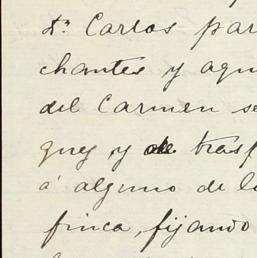 Dn. Carlos par
chantes y aqu
del Carmen se
ques y de trasp
á alguno de l
finca, fijando